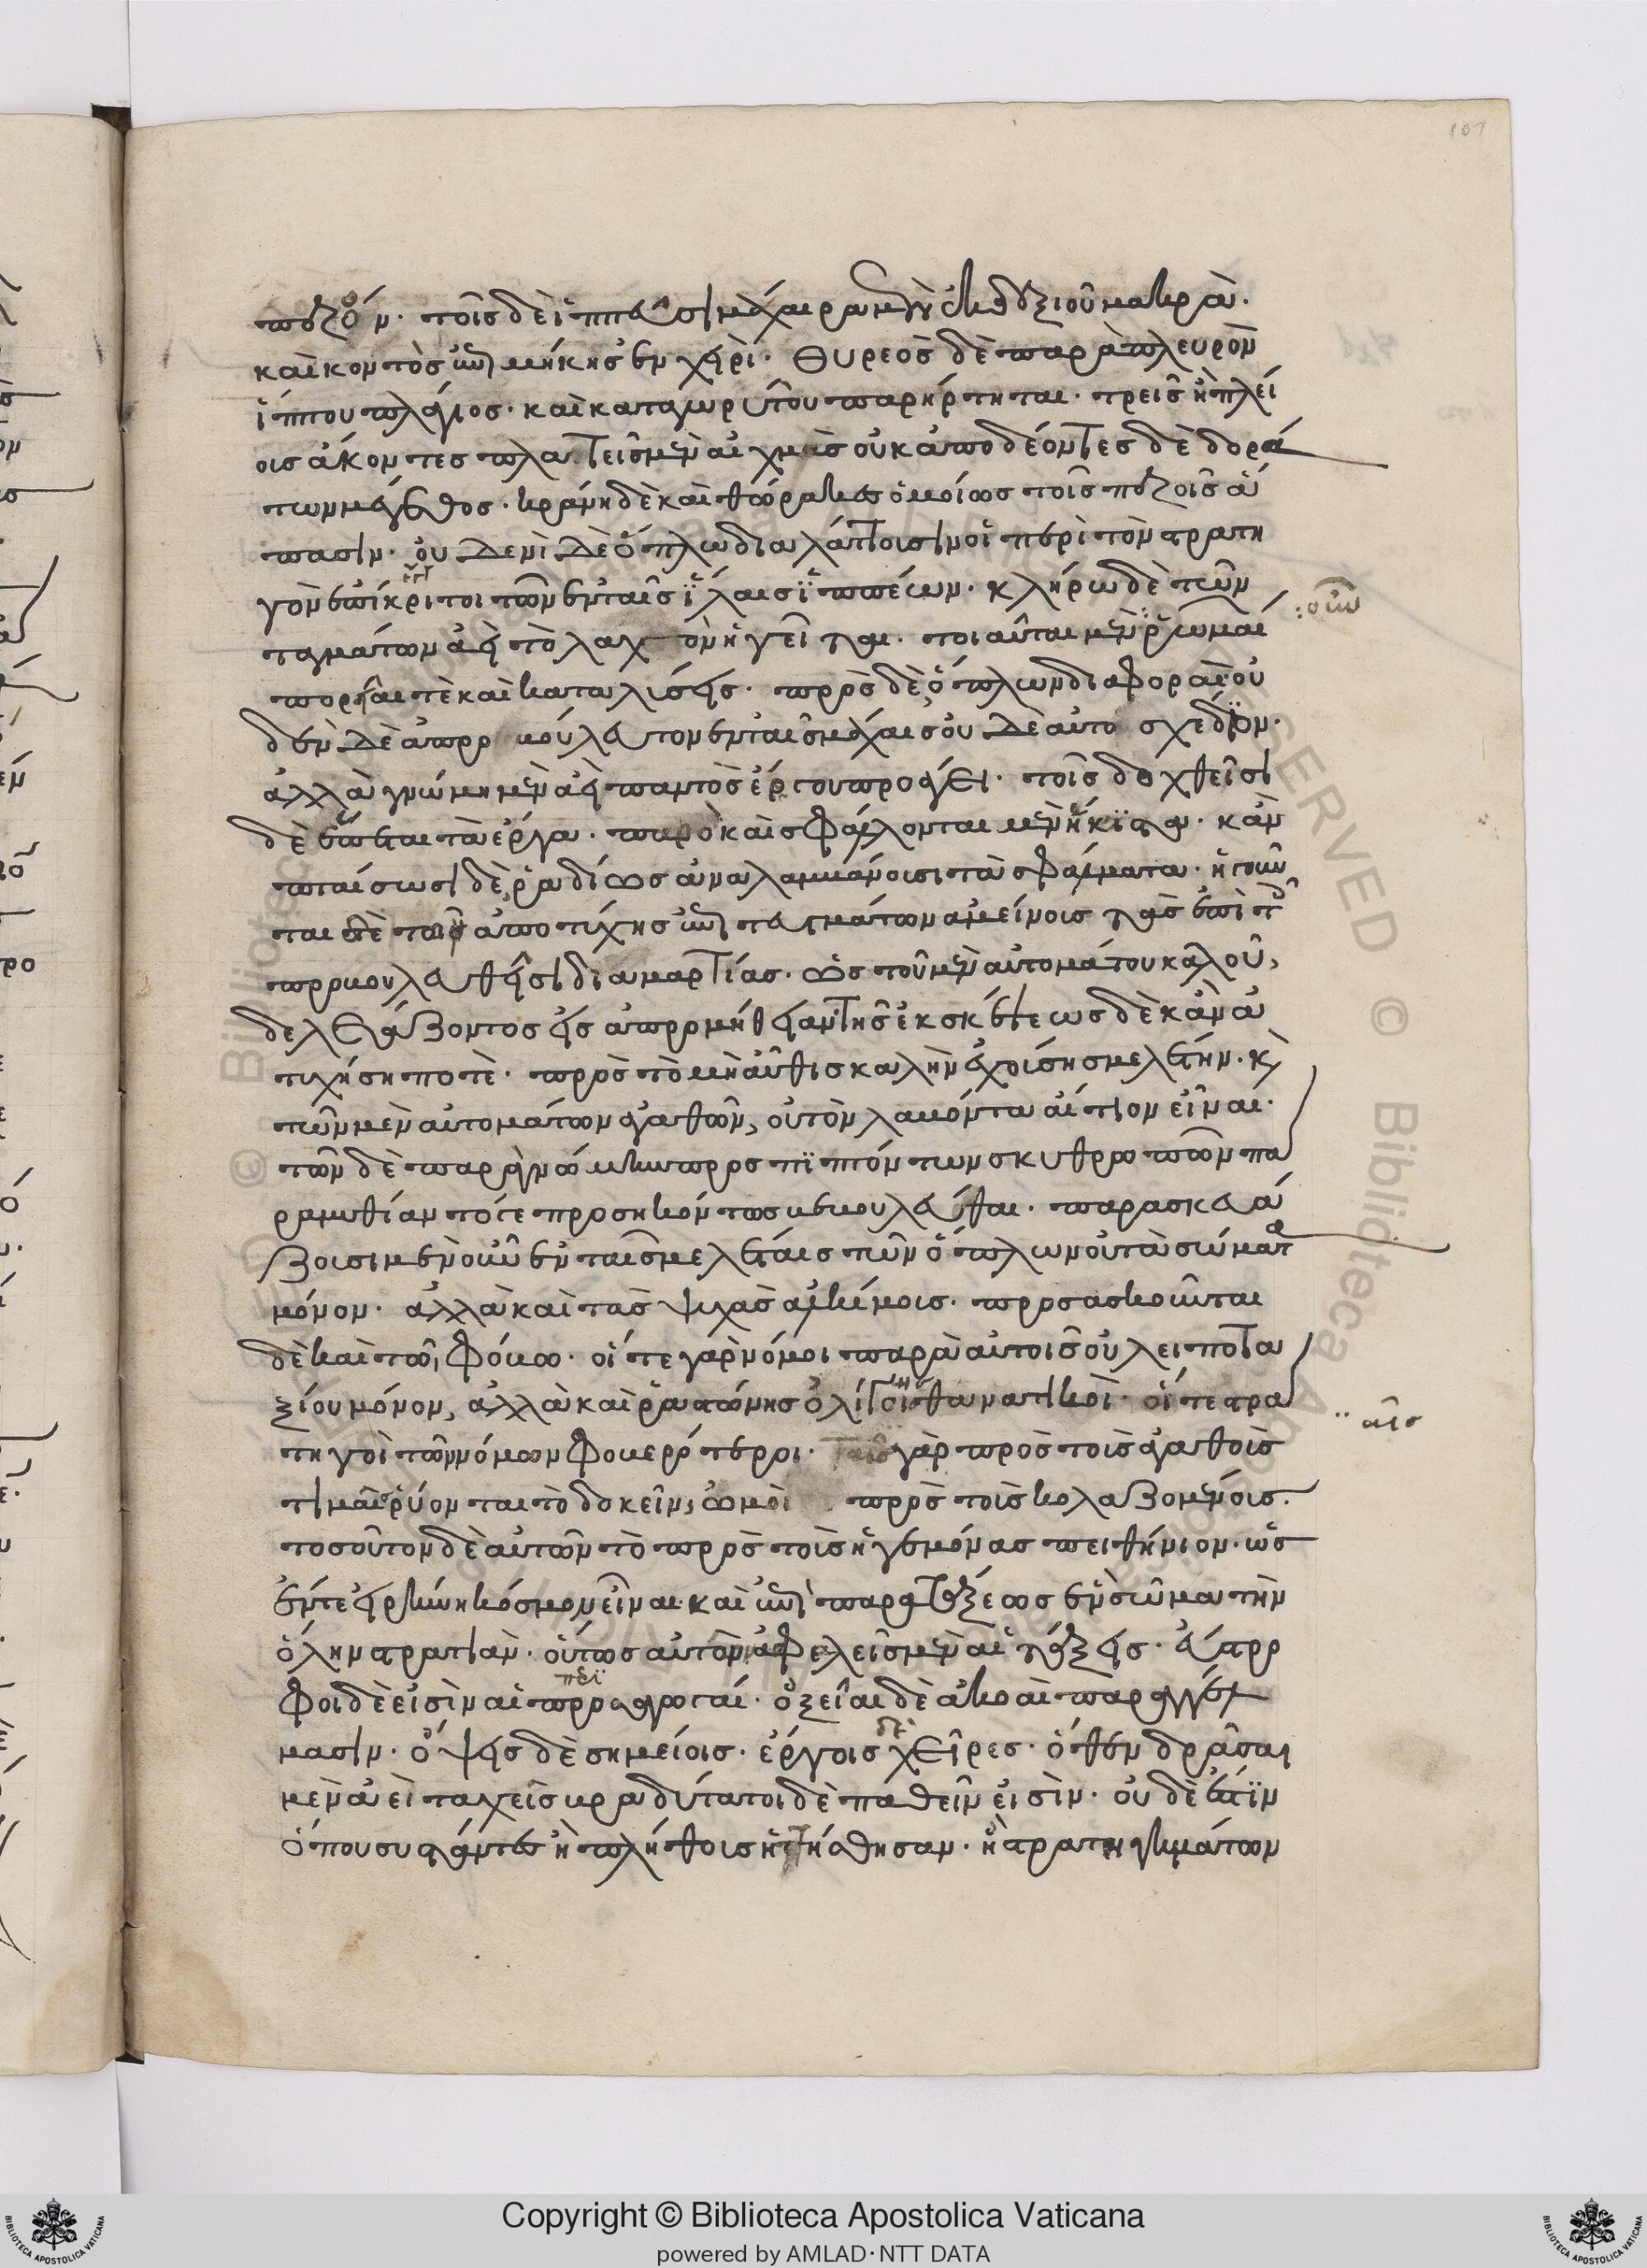 πεζόν. τοῖς δὲ ἱππεῦσι μάχαιρα μὲν ἐκ δεξιοῦ μακρὰ.
καὶ κοντὸς ἐπιμήκης ἐν χειρὶ. θυρεὸς δὲ παρὰ πλευρὸν
ἵππου πλάγιος. καὶ κατὰ γωρυτοῦ παρήρτηται. τρεῖς ἢ πλεί
ους ἄκοντες πλατεῖς μὲν αἰχμὰς οὐκ ἀποδέοντες δὲ δορά
των μέγεθος. κράνη δὲ καὶ θώρακες ὁμοίως τοῖς πεζοῖς ἅ
πασιν. οὐδενὶ δὲ ὅπλω διαλάττουσιν οἱ περὶ τὸν στρατη
γὸν ἐπίκριτοι τῶν ἐν ταῖς ἴλαις ἱππέων. κλήρω δὲ τῶν
ταγμάτων ἀεὶ τὸ λαχὸν ἡγεῖται. τοιαῦται μὲν ῥωμαί
πορεῖαι τὲ καὶ καταλύσεις. πρὸς δὲ ὅπλων διαφοραὶ οὐ
δὲν δὲ ἀπροβούλευτον ἐν ταῖς μάχαις οὐδὲ αὐτοσχεδίον.
ἀλλὰ γνώμη μὲν ἀεὶ παντὸς ἔργου προάγει. τοῖς δοχθεῖσι
δὲ ἕπεται τὰ ἔργα. παρὸ καὶ σφάλλονται μὲν ἥκιστα. κἀν
πταίσωσι δὲ ῥαδίως ἀναλαμβάνουσι τὰ σφάλματα. ἡγοῦν
ται τὲ τῶν ἀπὸ τύχης ἐπιταγμάτων ἀμείνους τὰς ἐπὶ τοῖς
προβουλευθεῖσι διαμαρτίας. ὡς τοῦ μὲν αὐτομάτου καλοῦ,
δελεάζοντος εἰς ἀπρομήθειαν τῆς ἐκσκέψεως δὲ κἀν ἀ
τυχήση ποτὲ. πρὸς τὸ μὴ αὖθις καλὴν ἐχούσης μελέτην. κ
τῶν μὲν αὐτομάτων ἀγαθῶν, οὐ τὸν λαβόντα αἴτιον εἶναι.
τῶν δὲ παρὰ γνώμην προσπιπτόντων σκυθρωπῶν πα
ραμυθίαν τό γε προσηκόντως βεβουλεῦσθαι. παρασκευά
ζουσι μὲν οὖν ἐν ταῖς μελέταις τῶν ὅπλων οὐ τὰ σώματα
μόνον. ἀλλὰ καὶ τὰς ψυχὰς ἀλκίμους. προσασκοῦνται
δὲ καὶ τῶ φόβω. οἵ τε γὰρ νόμοι παρὰ αὐτοῖς οὐ λειποτα
ξίου μόνον, ἀλλὰ καὶ ῥαστώνης ὀλίγης θανατικοὶ. οἵ τε στρα
τηγοὶ τῶν νόμων φοβερώτεροι. ταῖς γὰρ πρὸς τοὺς ἀγαθοὺς
τιμαῖς ῥύονται τὸ δοκεῖν, ὠμοὶ πρὸς τοὺς κολαζομένους.
τοσοῦτον δὲ αὐτῶν τὸ πρὸς τοὺς ἡγεμόνας πειθήνιον. ὡς
ἔν τε εἰρήνη κόσμον εἶναι. καὶ ἐπὶ παρατάξεως ἓν σῶμα τὴν
ὅλην στρατιὰν. οὕτως αὐτῶν ἀσφαλεῖς μὲν αἱ τάξεις. εὔστρο
φοι δὲ εἰσὶν αἱ περιαγωγαί. ὀξεῖαι δὲ ἀκοαὶ παραγγέλ
μασιν. ὄψεις δὲ σημείοις. ἔργοις δὲ χεῖρες. ὅθεν δρᾶσαι
μὲν ἀεὶ ταχεῖς βραδύτατοι δὲ παθεῖν εἰσὶν. οὐδὲ ἔστιν
ὅπου συστάντες ἢ πλήθους ἡττήθησαν. ἢ στρατηγημάτων
:ων
αῖς
Copyright © Biblioteca Apostolica Vaticana
powered by AMLAD·NTT DATA